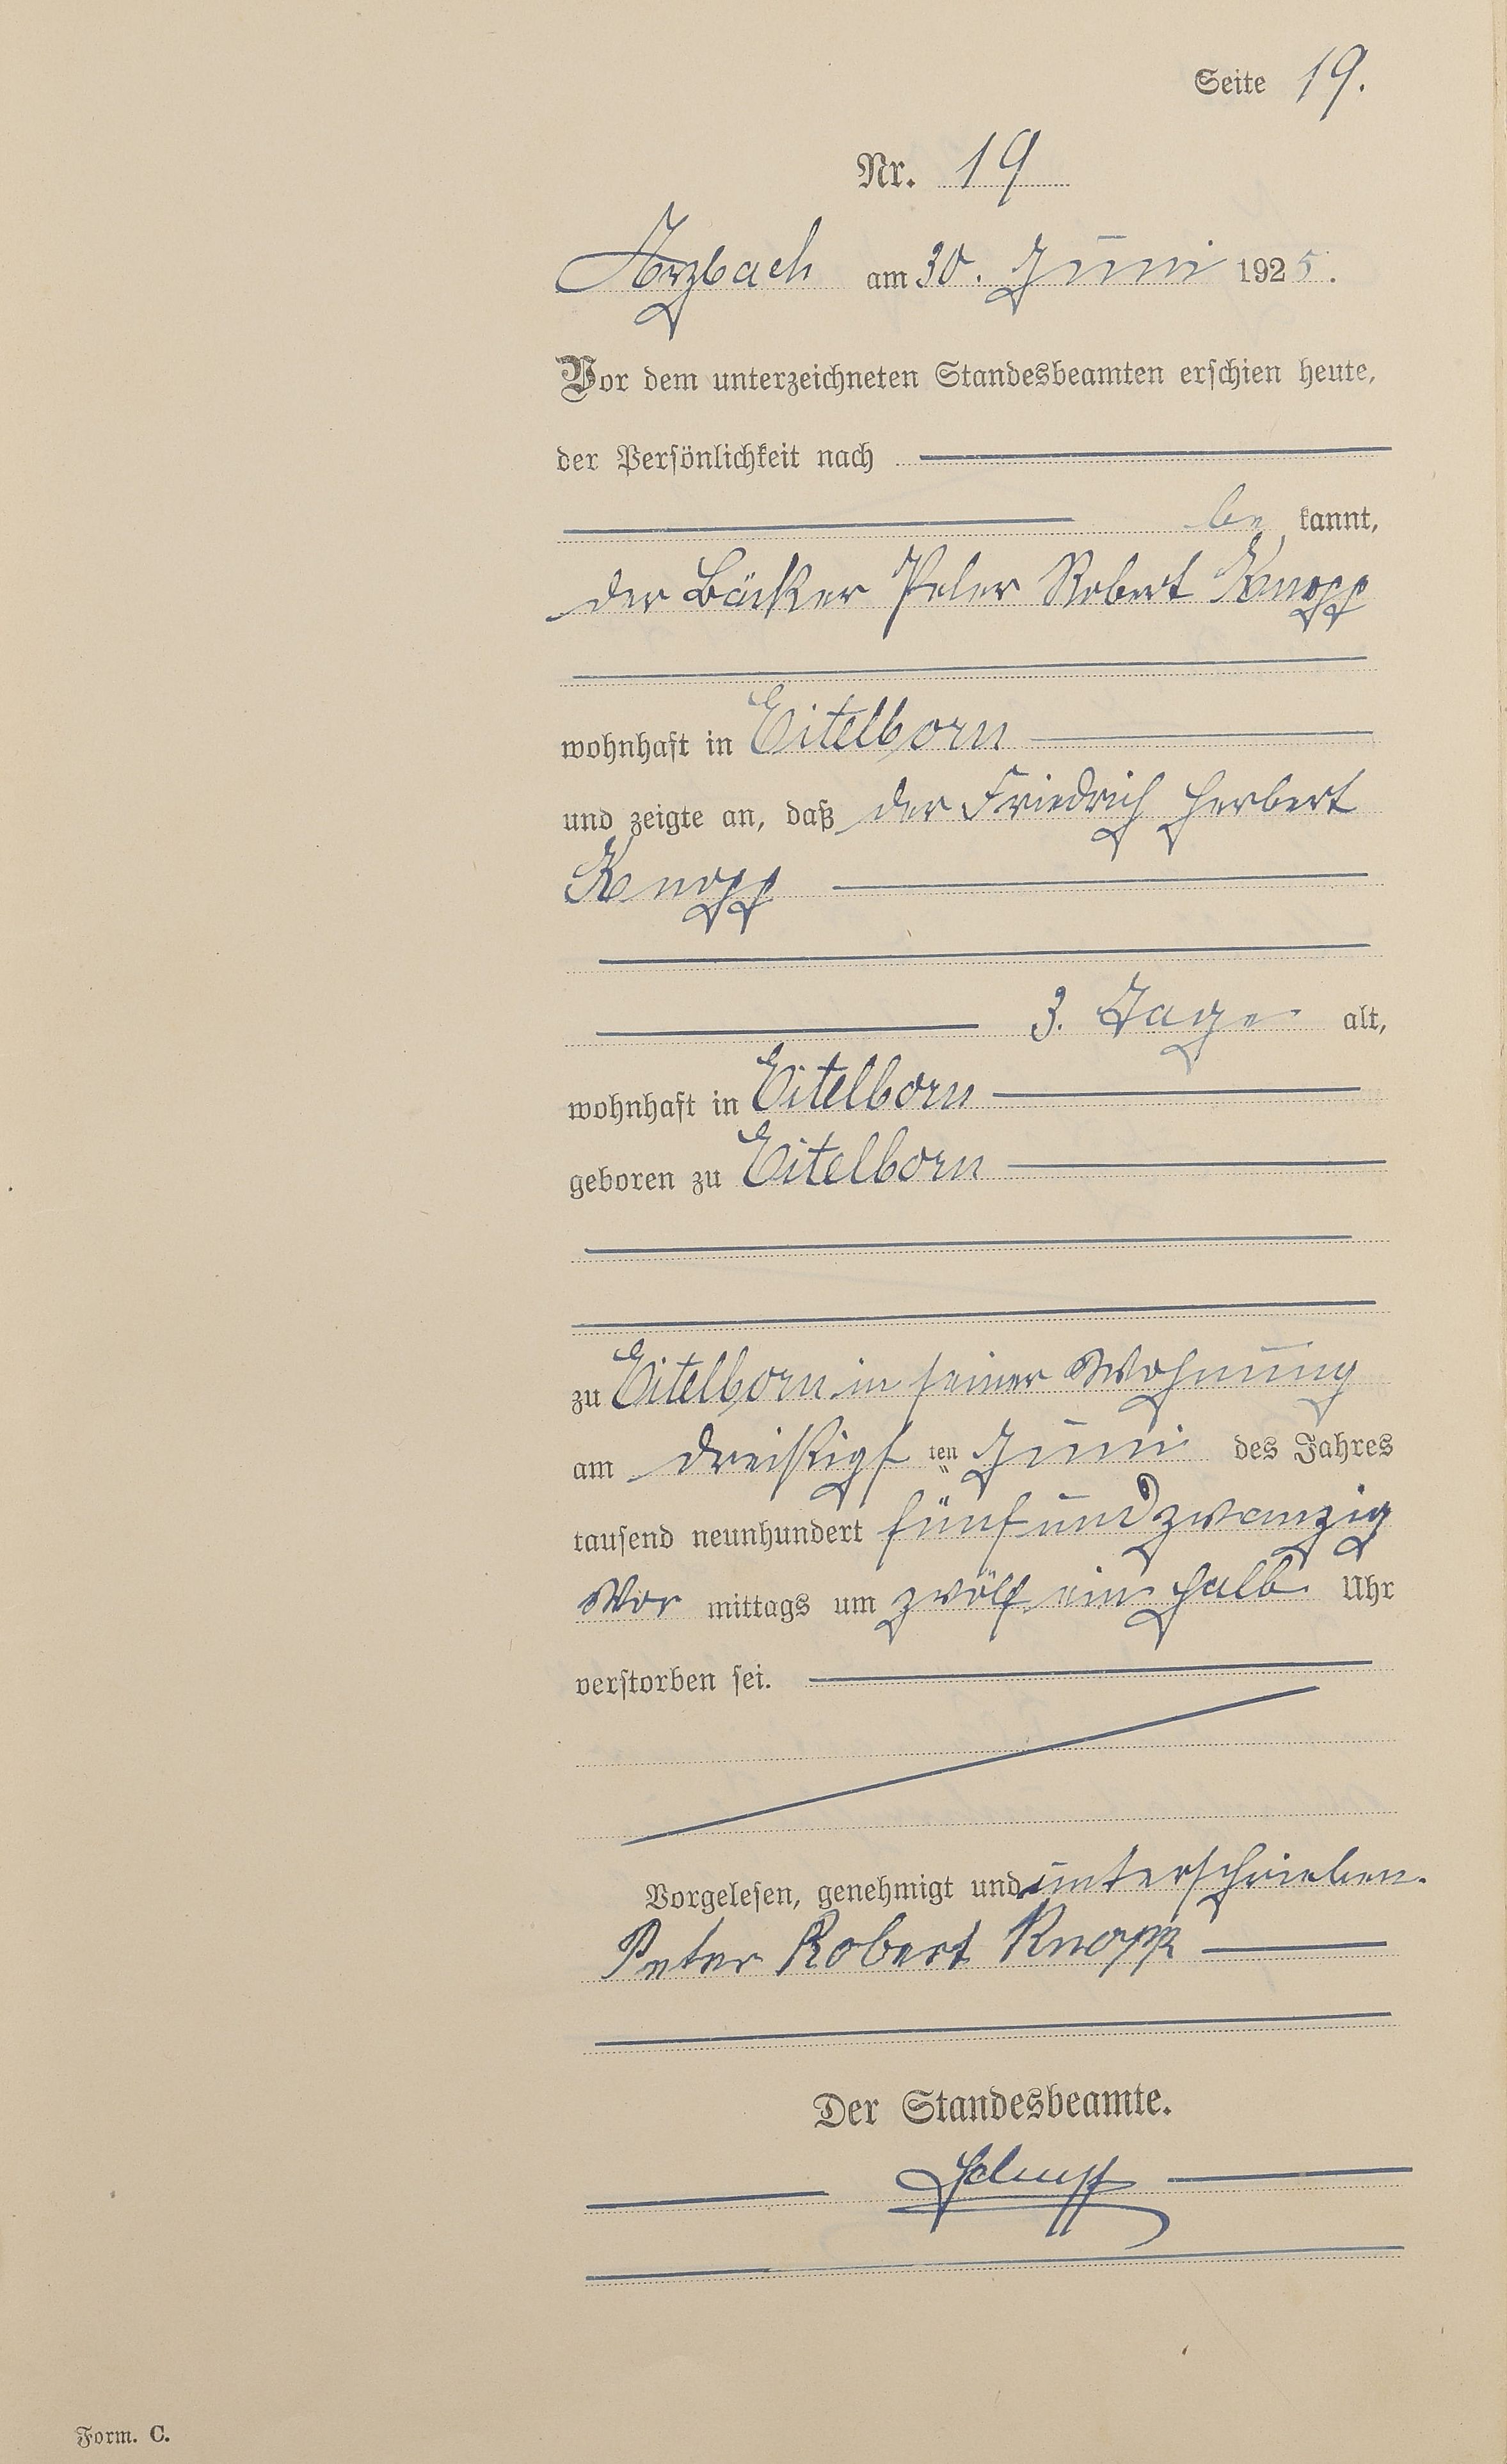 Seite 19.
Nr. 19
Arzbach am 30. Juni 1925.
Vor dem unterzeichneten Standesbeamten erschien heute,
der Persönlichkeit nach
be kannt,
der Bäcker Peter Robert Knopp
wohnhaft in Eitelborn
und zeigte an, daß der Friedrich Herbert
Knopp
3. Tage alt,
wohnhaft in Eitelborn
geboren zu Eitelborn
zu Eitelborn in seiner Wohnung
am dreißigs ten Juni des Jahres
tausend neunhundert fünfundzwanzig
Vor mittags um zwölf ein halb Uhr
verstorben sei.
Vorgelesen, genehmigt und unterschrieben.
Peter Robert Knopp
Der Standesbeamte.
Form. C.